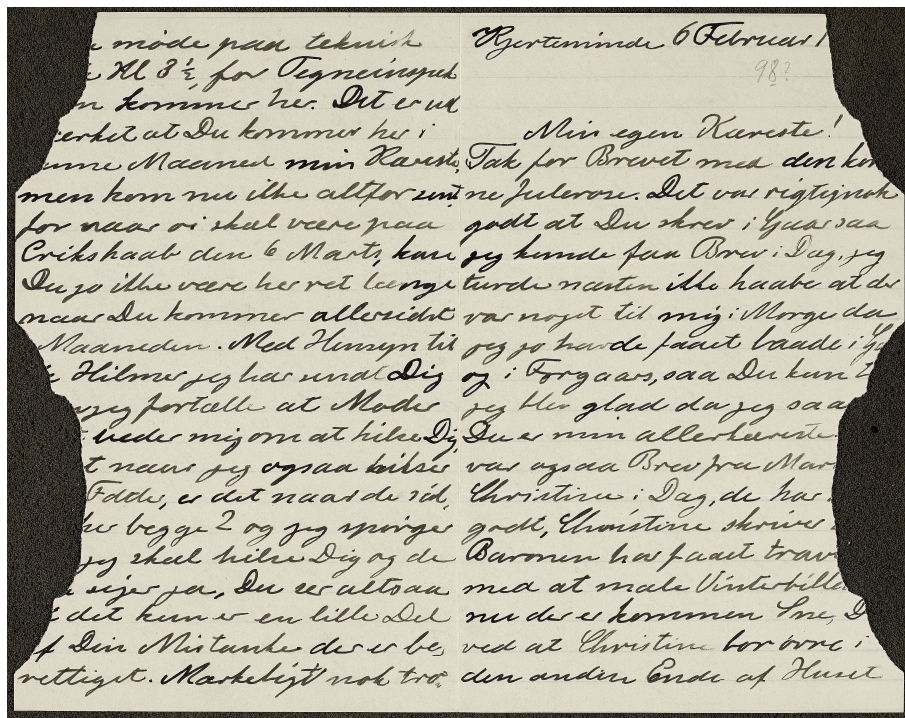 møde paa teknisk
Kl 3½, for Tegneinspek
kommer her. Det er ud
mærket at Du kommer her i
denne Maaned min Kæreste,
men kom nu ikke altfor sent
for naar vi skal være paa
Erikshaab den 6 Marts, kan
Du jo ikke være her ret længe
naar Du kommer allersidst
Maaneden. Med Hensyn til
Hilsner jeg har sendt Dig
jeg fortælle at Moder
beder mig om at hilse Dig,
t naar jeg ogsaa hilser
Fader, er det naar de sid,
her begge 2 og jeg spørger
jeg skal hilse Dig og de
siger ja, Du ser altsaa
det kun er en lille Del
af Din Mistanke der er be,
rettiget. Mærkeligt nok tro,
Kjerteminde 6 Februar 1
98?
Min egen Kæreste!
Tak for Brevet med den køn
ne Julerose. Det var rigtignok
godt at Du skrev i Gaar saa
jeg kunde faa Brev i Dag, jeg
turde næsten ikke haabe at der
var noget til mig i Morges da
jeg jo havde faaet baade i Ga
og i Forgaars, saa Du kan
jeg blev glad da jeg saa
Du er min allerkæreste
var ogsaa Brev fra Mar
Christine i Dag, de har
godt, Christine skriver
Baronen har faaet travl
med at male Vinterbille
nu der er kommen Sne, D
ved at Christine bor ovre i
den anden Ende af Huset